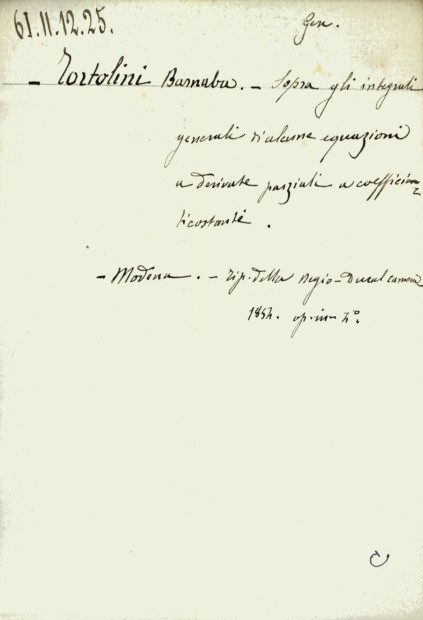 61.11.12.25.
Gen.
- Tortolini Barnaba. - Sopra gli integrali
generali d'alcune equazioni
a derivate parziali a coefficien-
ti costanti.
- Modena. - Tip. della Regio-Ducal camera
1854. op. in-4°.